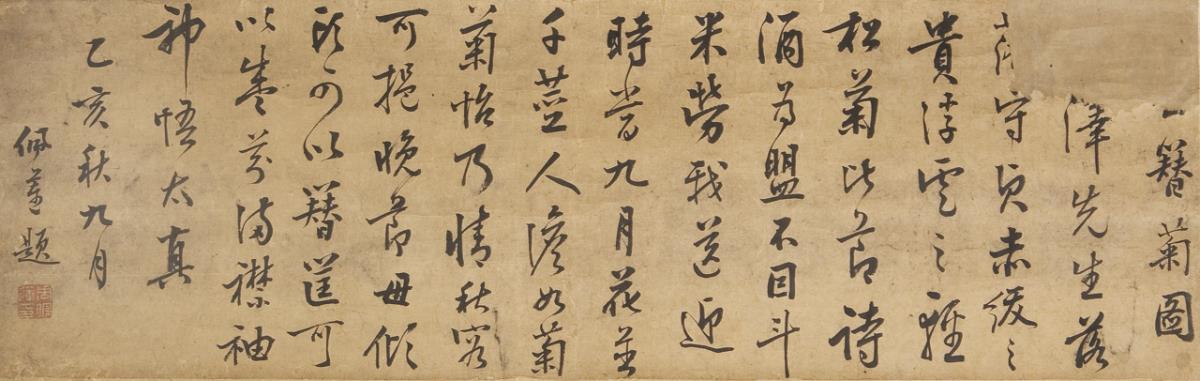 一簪菊圖
澤先生落
守貞赤紱之
貴浮雲之輕
松菊比節詩
酒為盟不因斗
米勞我送迎
時當九月花並
千莖人澹如菊
菊怡乃情秋容
可挹晚節毋傾
頭可以簪筐可
以盛芬滿襟袖
神悟太真
乙亥秋九月
佩題